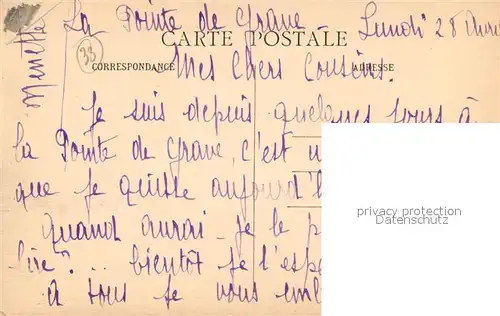 La Pointe de Grave Lundi 28
CARTE POSTALE
33
CORRESPONDANCE
ADRESSE
Mes Chers Cousins.
Je suis depuis quelques jours à
la Pointe de Grave, c'est
que je quitte aujourd'h
Quand aurai-je le p
lire?... bientôt je l'esp
à tous je vous emb
privacy protection
Datenschutz